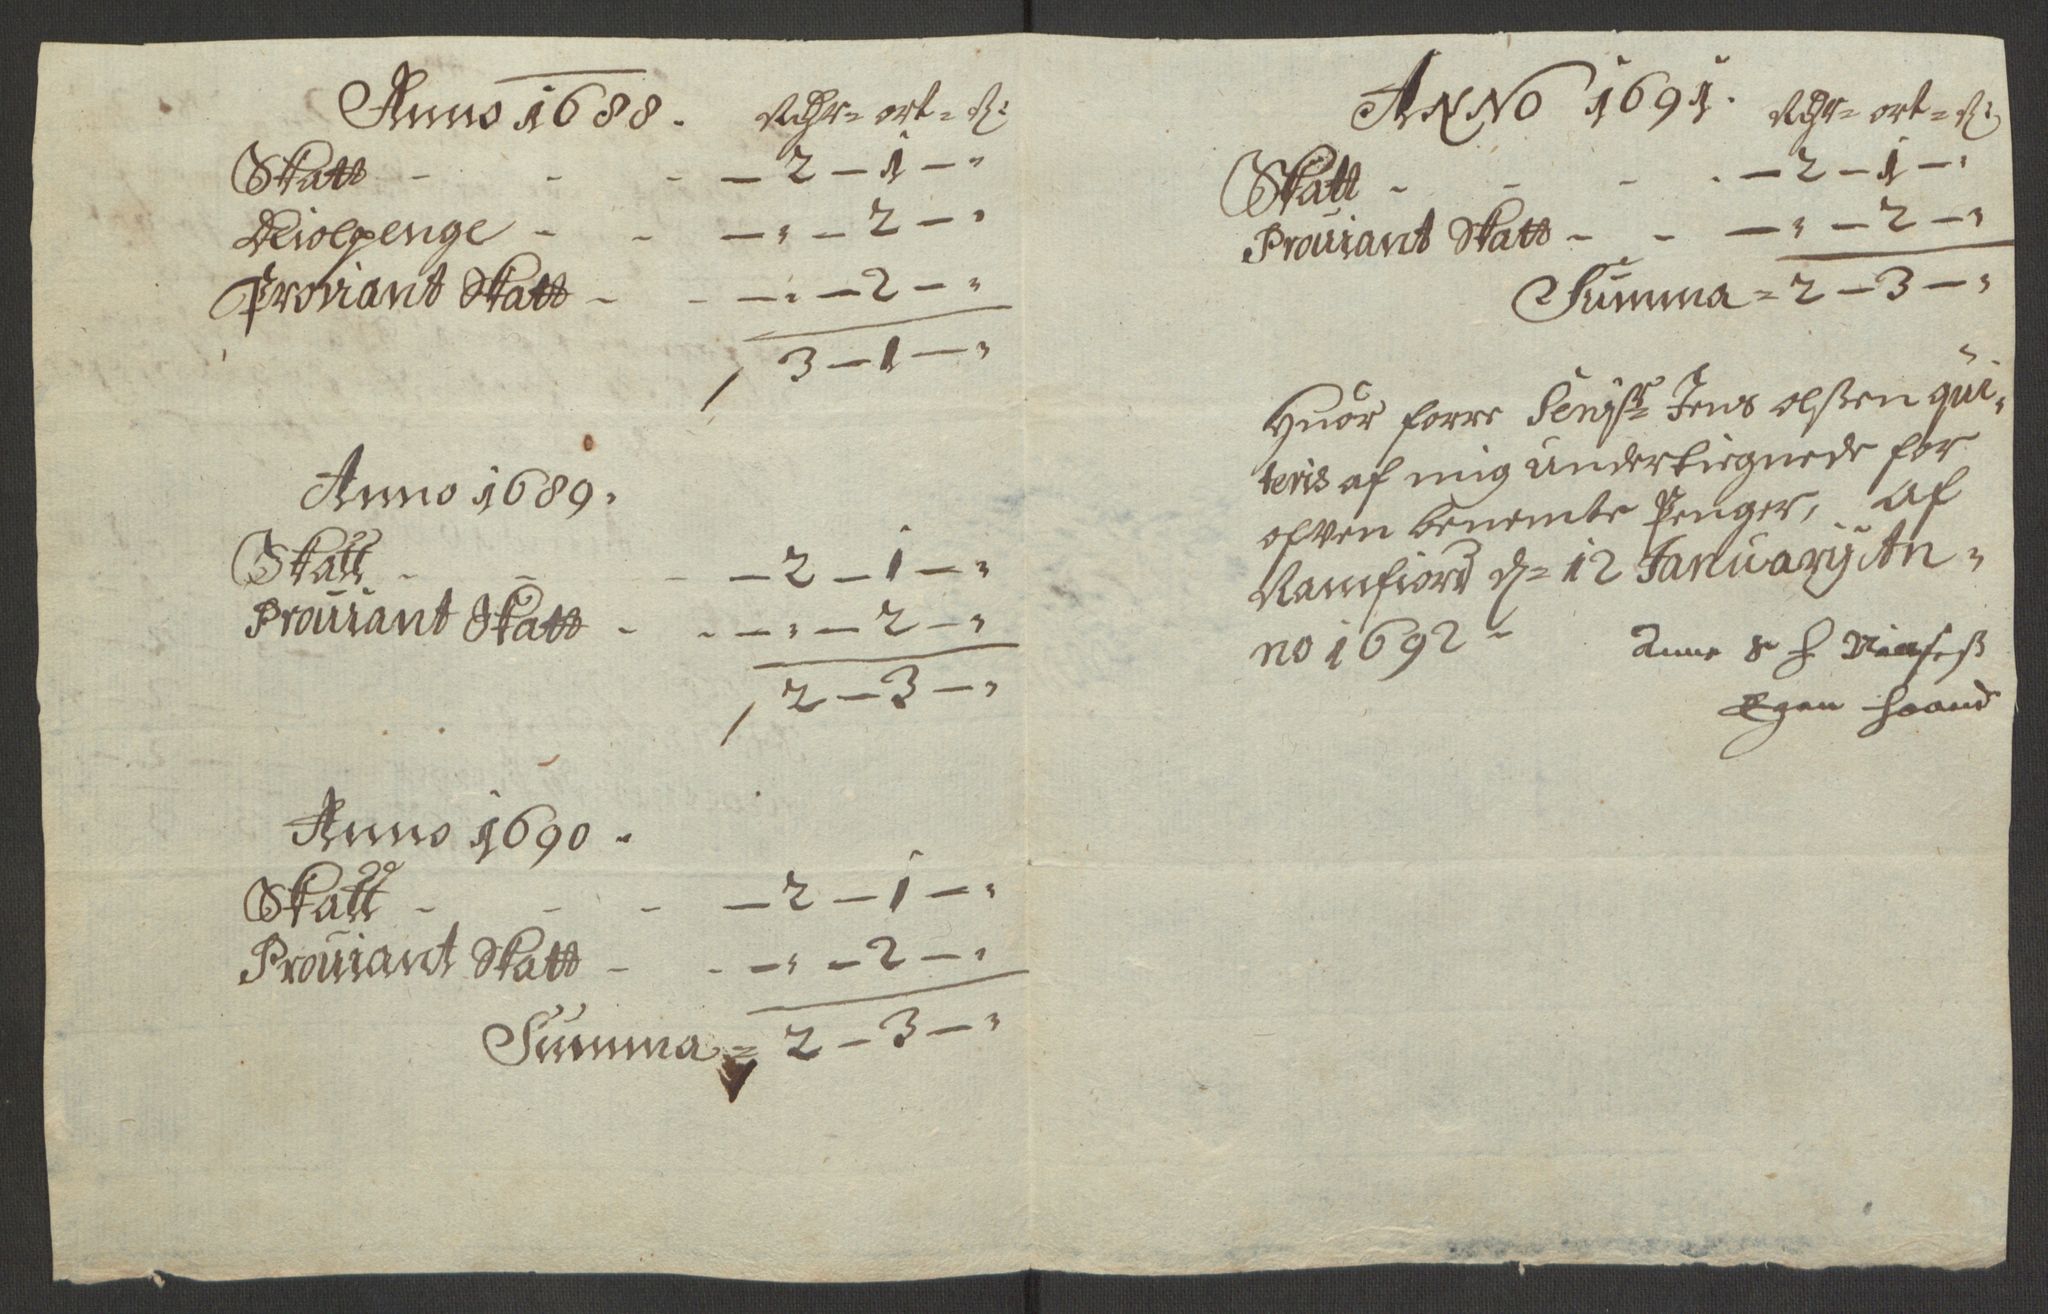 Anno 1688. Rdr= ort= ß:
Skatt - - - — 2 — 1 — "
Veiolpenge - - — " — 2 — "
Proviant Skatt - - — " — 2 — "
3 — 1 — "
Anno 1689.
Skatt - - - — 2 — 1 — "
Proviant Skatt - - — " — 2 — "
2 — 3 — "
Anno 1690 -
Skatt - - - — 2 — 1 — "
Proviant Skatt - - — " — 2 — "
Summa = 2 — 3 — "
ANNO 1691. Rdr= ort= ß:
Skatt - - - - — 2 — 1 — "
Proviant Skatt - - — " — 2 — "
Summa = 2 — 3 — "
Huor forre Jens olßen qui-
teris af mig underteignede for
ofven benemte Penger, Af
Ramfiord d= 12 January An-
no 1692 - Anne
Egen haand